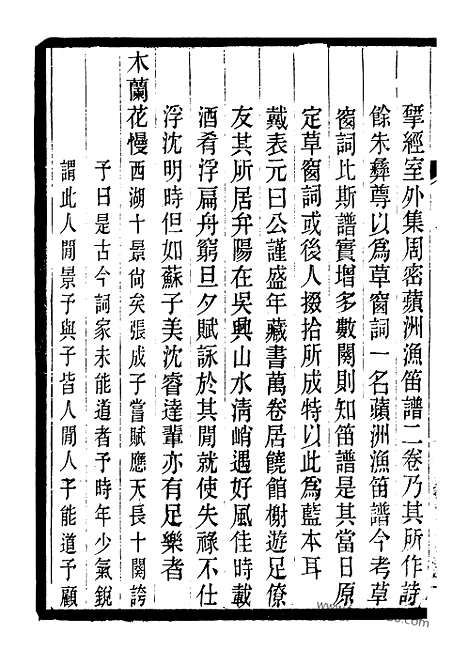 揅經室外集周密蘋洲漁笛譜二卷乃其所作詩
餘朱彝尊以爲草窗詞一名蘋洲漁笛譜今考草
窗詞比斯譜實增多數闋則知笛譜是其當日原
定草窗詞或後人掇拾所成特以此爲藍本耳
戴表元曰公謹盛年藏書萬卷居饒館榭遊足僚
友其所居弁陽在吳興山水清峭遇好風佳時載
酒肴浮扁舟窮旦夕賦詠於其閒就使失祿不仕
浮沈明時但如蘇子美沈睿達輩亦有足樂者
木蘭花慢西湖十景尚矣張成子嘗賦應天長十闋誇
予曰是古今詞家未能道者予時年少氣銳
謂此人閒景予與子皆人閒人子能道予顧